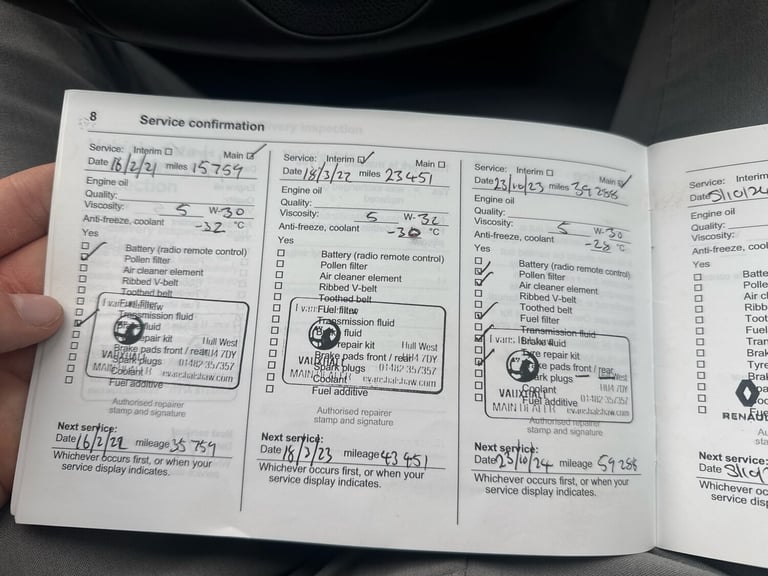 8
Service confirmation
Service: Interim ☐ Main ☑
Date 16/2/21 miles 15759
Engine oil
Quality:
Viscosity: 5 W-30
Anti-freeze, coolant -32 °C
Yes
Battery (radio remote control)
Pollen filter
Air cleaner element
Ribbed V-belt
Toothed belt
Fuel filter
Transmission fluid
Brake fluid
repair kit
Brake pads front / rear
Spark plugs
Coolant
Fuel additive
Evans Halshaw
Hull West
HU4 7DY
VAUXHALL 01482 357357
MAIN DEALER evanshalshaw.com
Authorised repairer
stamp and signature
Next service:
Date 16/2/22 mileage 35759
Whichever occurs first, or when your
service display indicates.
Service: Interim ☑ Main ☐
Date 18/3/22 miles 23451
Engine oil
Quality:
Viscosity: 5 W-30
Anti-freeze, coolant -30 °C
Yes
Battery (radio remote control)
Pollen filter
Air cleaner element
Ribbed V-belt
Toothed belt
Fuel filter
Transmission fluid
fluid
repair kit
Brake pads front / rear
Spark plugs
Coolant
Fuel additive
Hull West
HU4 7DY
VAUXHALL 01482 357357
MAIN DEALER evanshalshaw.com
Authorised repairer
stamp and signature
Next service:
Date 18/3/23 mileage 43451
Whichever occurs first, or when your
service display indicates.
Service: Interim ☐ Main ☑
Date 23/10/23 miles 39288
Engine oil
Quality:
Viscosity: 5 W-30
Anti-freeze, coolant -28 °C
Yes
Battery (radio remote control)
Pollen filter
Air cleaner element
Ribbed V-belt
Toothed belt
Fuel filter
Transmission fluid
Brake fluid
Tyre repair kit
Brake pads front / rear
Spark plugs
Coolant
Fuel additive
West
HU4 7DY
VAUXHALL 01482 357357
MAIN DEALER evanshalshaw.com
Authorised repairer
stamp and signature
Next service:
Date 23/10/24 mileage 59288
Whichever occurs first, or when your
service display indicates.
Service: Interim
Date 5/10/24
Engine oil
Quality:
Viscosity:
Anti-freeze, cool
Yes
RENAU
Next service:
Date 5/10/
Whichever oc
service disp